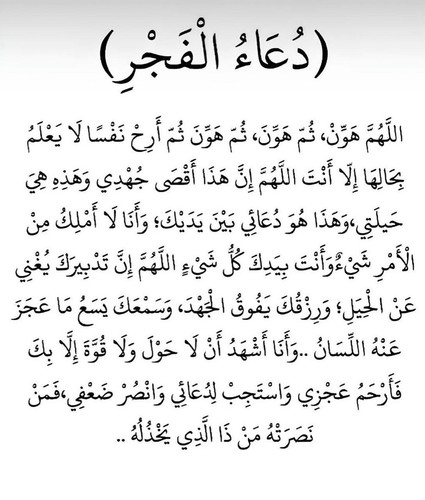 (دُعَاءُ الْفَجْرِ)
اللَّهُمَّ هَوِّنْ، ثُمَّ هَوِّنَ، ثُمّ هَوِّنَ ثُمّ أَرِحْ نَفْسًا لَا يَعْلَمُ
بِحَالِهَا إِلّا أَنْتَ اللَّهُمَّ إِنَّ هَذَا أَقْصَى جُهْدِي وَهَذِهِ هِيَ
حَيلَتِي،وَهَذَا هُوَ دُعَائِي بَيْنَ يَدَيْكَ؛ وَأَنَا لَا أَمْلِكُ مِنْ
الْأَمْرِ شَيْءٌوَأَنْتَ بِيَدِكَ كُلُّ شَيْءٍ اللَّهُمَّ إِنَّ تَدْبِيرَكَ يُغْنِي
عَنْ الْحِيَلِ؛ وَرِزْقُكَ يَفُوقُ الْجَهْدَ، وَسَمْعَكَ يَسَعُ مَا عَجَزَ
عَنْهُ اللِّسَانُ ..وَأَنَا أَشْهَدُ أَنْ لَا حَوْلَ وَلَا قُوَّةَ إِلَّا بِكَ
فَأَرْحَمُ عَجْزِي وَاسْتَجِبْ لِدُعَائِي وَانْصُرْ ضَعْفِي،فَمَنْ
نَصَرَتْهُ مَنْ ذَا الَّذِي يَخْذُلُهُ ..